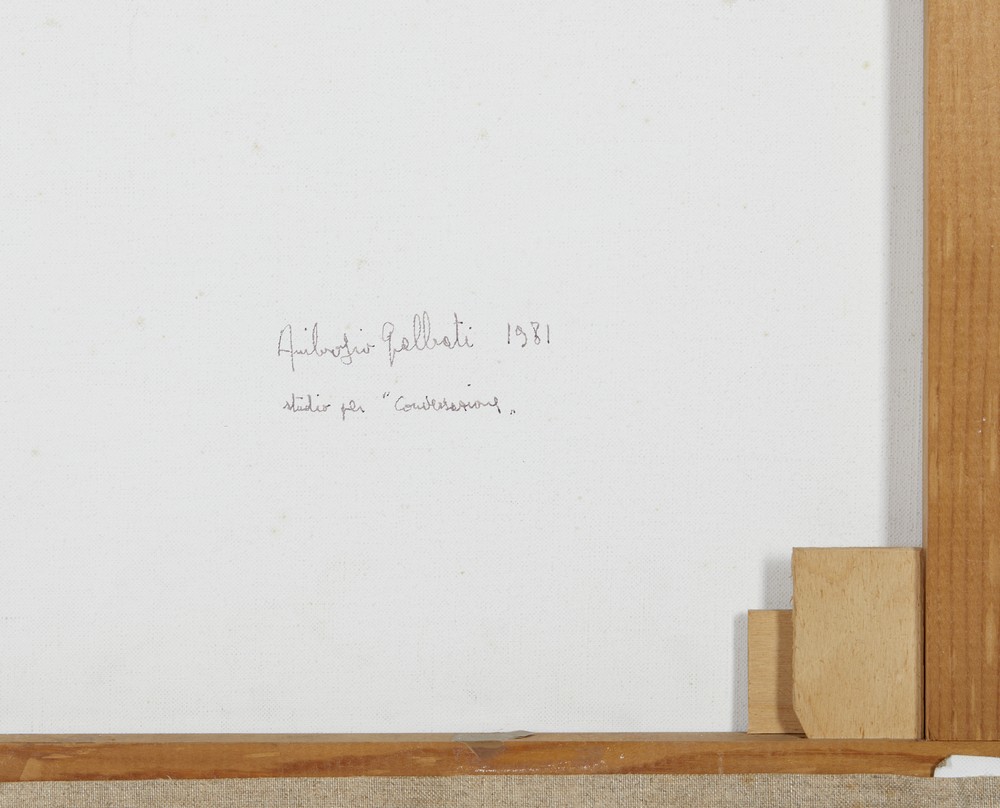 Ambrogio Galbiati 1981
studio per "Conversazione„